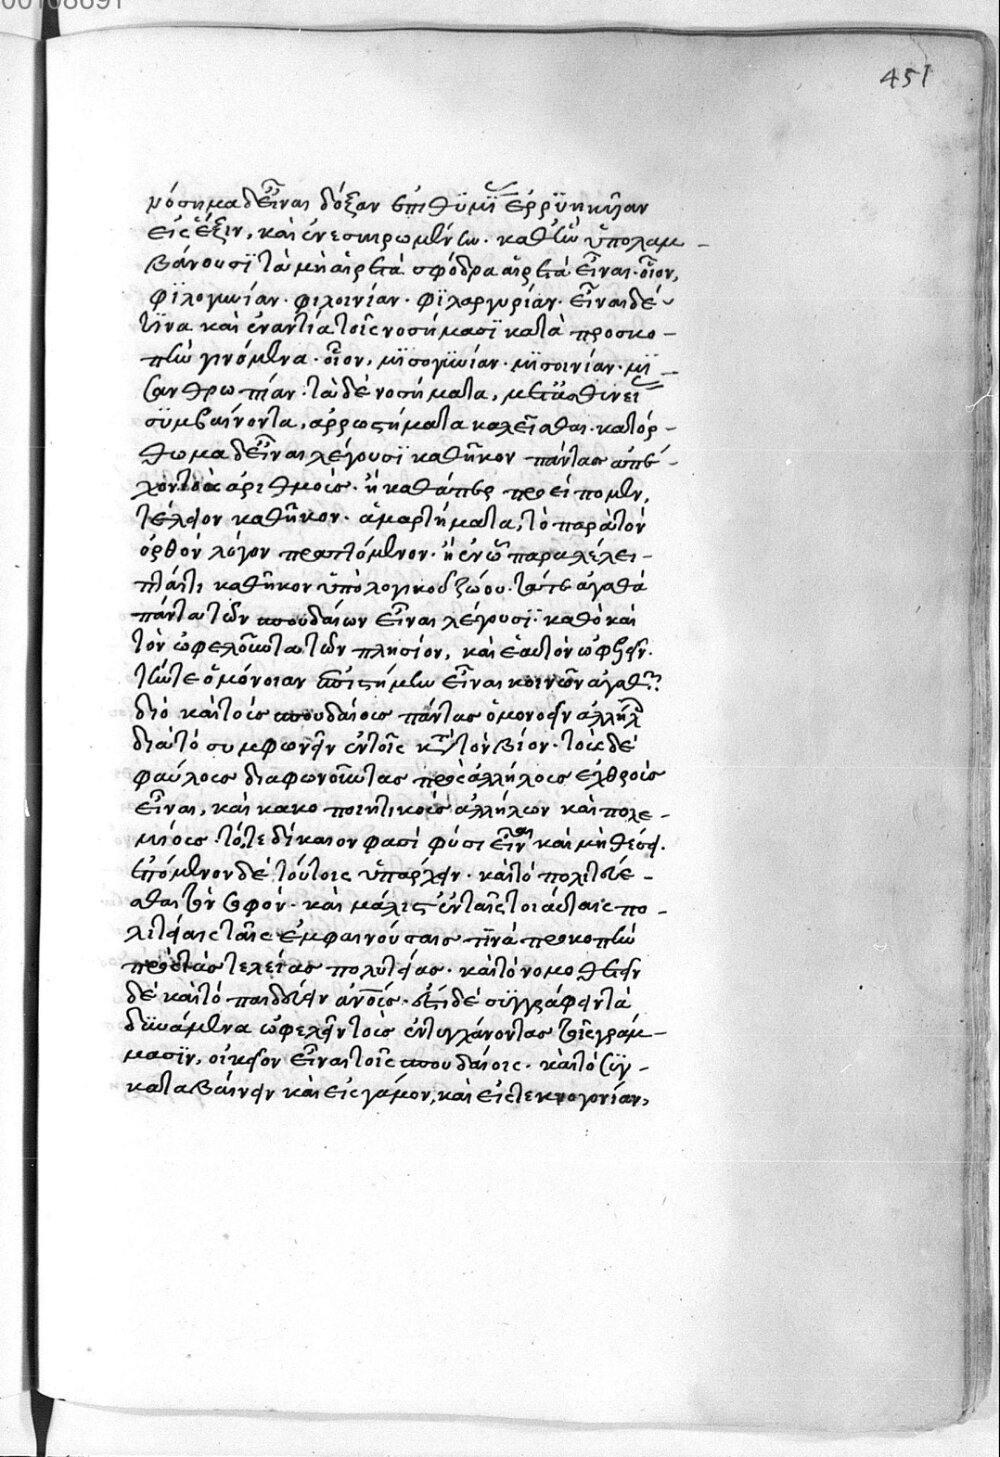 00108691
451
νόσημα δ εἶναι δόξαν ἐπιθυμί ἐρρυηκῆαν
εἰς ἕξιν, καὶ ἐνεσκιρωμένην. καθ ἣν ὑπολαμ-
βάνουσι τὰ μὴ αἱρετὰ σφόδρα αἱρετὰ εἶναι. οἷον,
φιλογυνίαν. φιλοινίαν. φιλαργυρίαν. εἶναι δέ
τινα καὶ ἐναντία τοῖς νοσήμασι κατὰ προσκο-
πὴν γινόμενα. οἷον, μισογυνίαν. μισοινίαν. μι-
σανθρωπίαν. τὰ δὲ νοσήματα, μετ ἀσθενεί
συμβαίνοντα, ἀρρωστήματα καλεῖσθαι. κατόρ-
θωμα δ εἶναι λέγουσι καθῆκον πάντας ἀπέ-
χοντας ἀριθμούς. ἢ καθάπερ προείπομεν,
τέλειον καθῆκον. ἁμαρτήματα, τὸ παρὰ τὸν
ὀρθὸν λόγον πραττόμενον. ἢ ἐν ᾧ παραλέλει-
πταί τι καθῆκον ὑπὸ λογικοῦ ζώου. τά τε ἀγαθὰ
πάντα τῶν σπουδαίων εἶναι λέγουσι. καθὸ καὶ
τὸν ὠφελοῦντα τῶν πλησίον, καὶ ἑαυτὸν ὠφελεῖν.
τήν τε ὁμόνοιαν ἐπιστήμην εἶναι κοινῶν ἀγαθῶν
διὸ καὶ τοὺς σπουδαίους πάντας ὁμονοεῖν ἀλλήλ
διὰ τὸ συμφωνεῖν ἐν τοῖς κατὰ τὸν βίον. τοὺς δὲ
φαύλους διαφωνοῦντας πρὸς ἀλλήλους ἐχθροὺς
εἶναι, καὶ κακοποιητικοὺς ἀλλήλων καὶ πολε-
μίους. τό, τε δίκαιον φασὶ φύσει εἶναι καὶ μὴ θέσει.
ἑπόμενον δὲ τούτοις ὑπάρχειν. καὶ τὸ πολιτεύε-
σθαι τὸν σοφόν. καὶ μάλιστ ἐν ταῖς τοιαύταις πο-
λιτείαις ταῖς ἐμφαινούσαις τινὰ προκοπὴν
πρὸς τὰς τελείας πολιτείας. καὶ τὸ νομοθετεῖν
δὲ καὶ τὸ παιδεύειν ἀνους. ἔτι δὲ συγγράφειν τὰ
δυνάμενα ὠφελεῖν τοὺς ἐντυγχάνοντας τοῖς γράμ-
μασιν, οἰκεῖον εἶναι τοῖς σπουδαίοις. καὶ τὸ συγ-
καταβαίνειν καὶ εἰς γάμον, καὶ εἰς τεκνογονίαν,